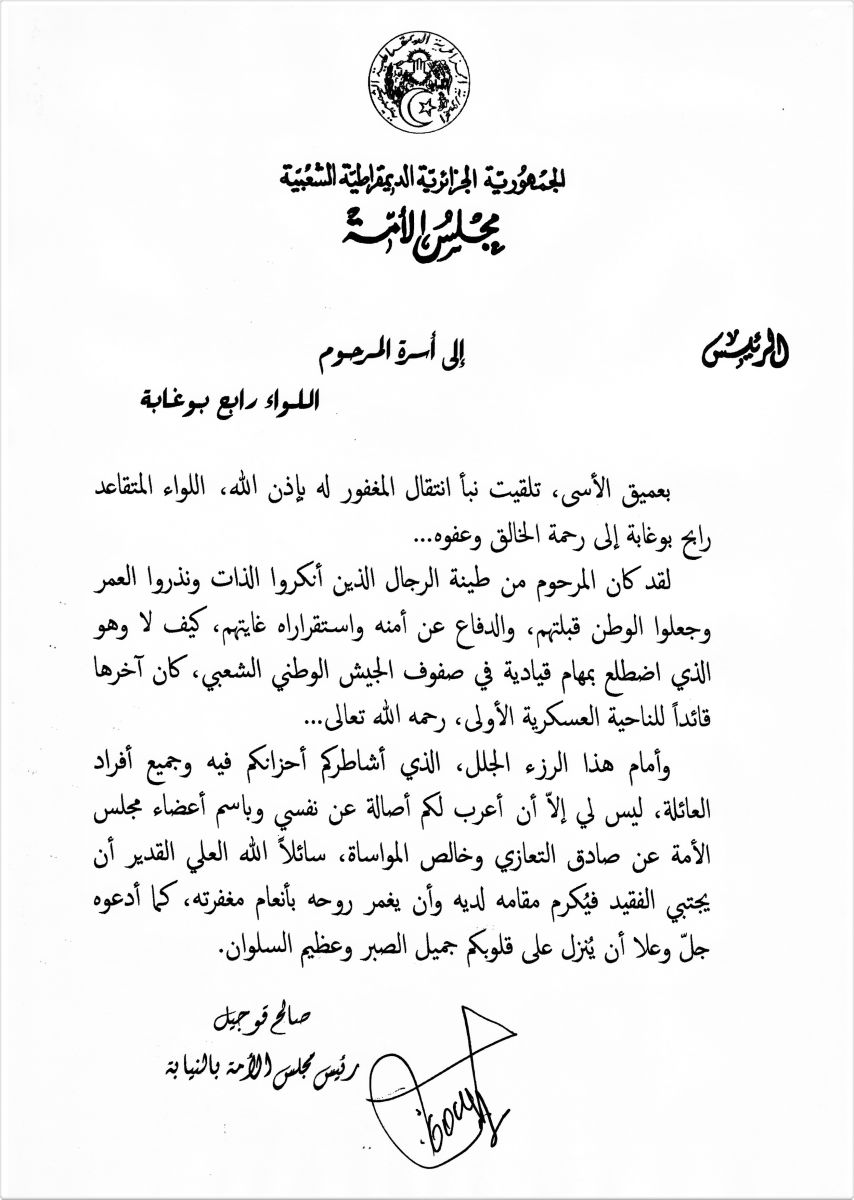 الجمهورية الجزائرية الديمقراطية الشعبية
مجلس الأمة
الرئيس
إلى أسرة المرحوم
اللواء رابح بوغابة
بعميق الأسى، تلقيت نبأ انتقال المغفور له بإذن الله، اللواء المتقاعد
رابح بوغابة إلى رحمة الخالق وعفوه...
لقد كان المرحوم من طينة الرجال الذين أنكروا الذات ونذروا العمر
وجعلوا الوطن قبلتهم، والدفاع عن أمنه واستقراراه غايتهم، كيف لا وهو
الذي اضطلع بمهام قيادية في صفوف الجيش الوطني الشعبي، كان آخرها
قائداً للناحية العسكرية الأولى، رحمه الله تعالى...
وأمام هذا الرزء الجلل، الذي أشاطركم أحزانكم فيه وجميع أفراد
العائلة، ليس لي إلاّ أن أعرب لكم أصالة عن نفسي وباسم أعضاء مجلس
الأمة عن صادق التعازي وخالص المواساة، سائلاً الله العلي القدير أن
يجتبي الفقيد فيُكرم مقامه لديه وأن يغمر روحه بأنعام مغفرته، كما أدعوه
جلّ وعلا أن يُنزل على قلوبكم جميل الصبر وعظيم السلوان.
صالح قوجيل
رئيس مجلس الأمة بالنيابة